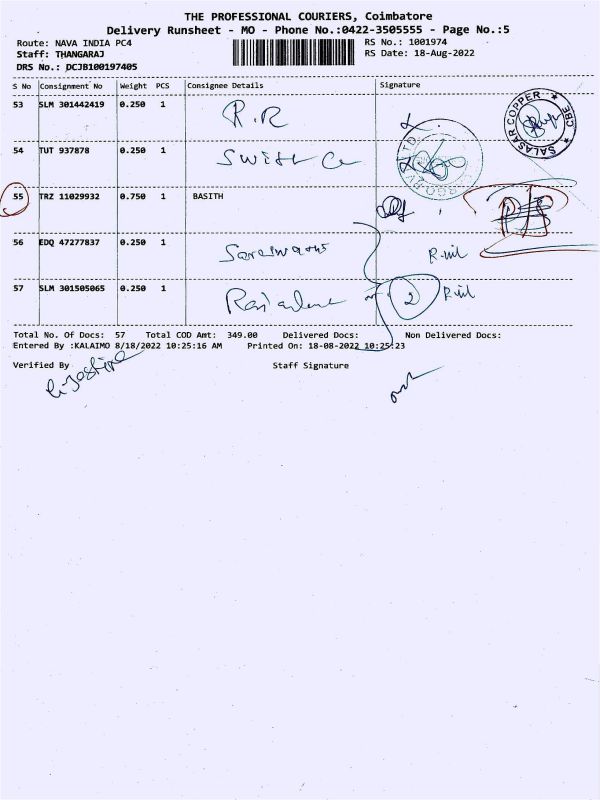 THE PROFESSIONAL COURIERS, Coimbatore
Delivery Runsheet - MO - Phone No.:0422-3505555 - Page No.:5
Route: NAVA INDIA PC4 RS No.: 1001974
Staff: THANGARAJ RS Date: 18-Aug-2022
DRS No.: DCJB100197405
S No Consignment No Weight PCS Consignee Details Signature
53 SLM 301442419 0.250 1 R.R
SALASAR COPPER ★ CBE ★
54 TUT 937878 0.250 1
55 TRZ 11029932 0.750 1 BASITH
56 EDQ 47277837 0.250 1
57 SLM 301505065 0.250 1 2
Total No. Of Docs: 57 Total COD Amt: 349.00 Delivered Docs: Non Delivered Docs:
Entered By :KALAIMO 8/18/2022 10:25:16 AM Printed On: 18-08-2022 10:25:23
Verified By Staff Signature